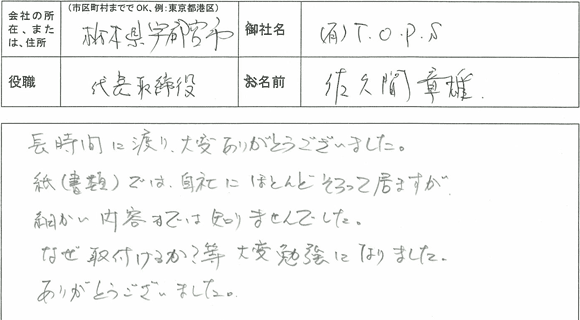 会社の所在、または、住所
(市区町村まででOK、例:東京都港区)
栃木県宇都宮市
御社名
(有)T.O.P.S
役職
代表取締役
お名前
佐久間章雄.
長時間に渡り、大変ありがとうございました。
紙(書類)では、自社にほとんどそろって居ますが、
細かい内容までは知りませんでした。
なぜ取付けるか?等大変勉強になりました。
ありがとうございました。